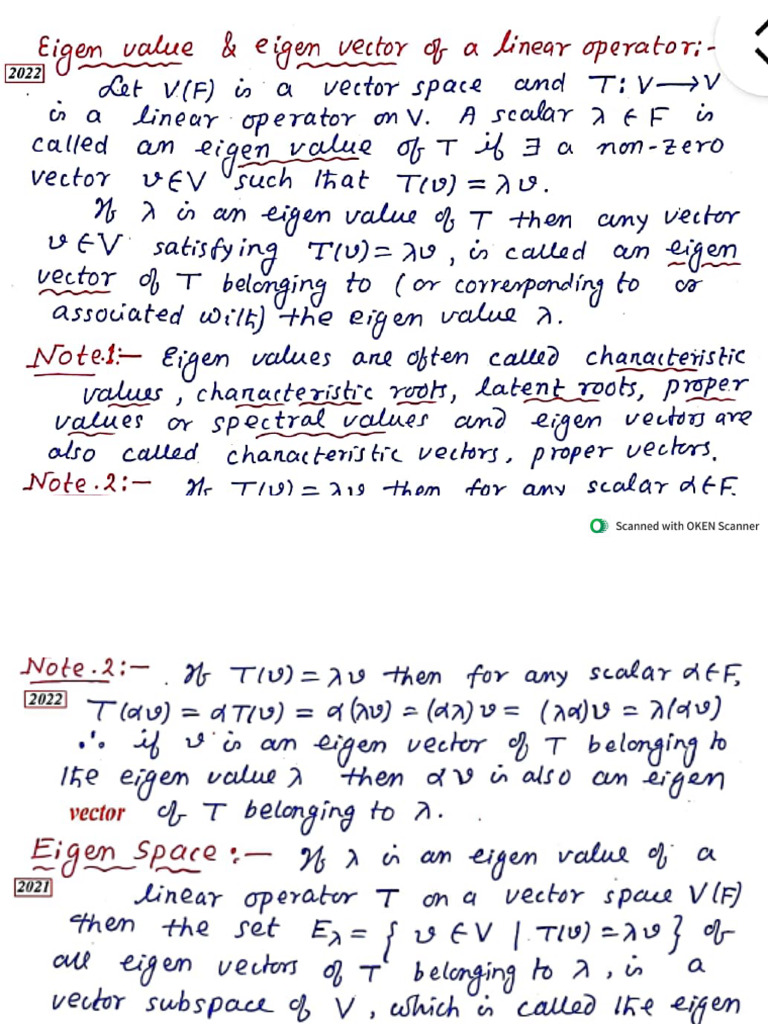 Eigen value & eigen vector of a linear operator:-
2022
Let V(F) is a vector space and T: V⟶V
is a linear operator on V. A scalar λ ∈ F is
called an eigen value of T if ∃ a non-zero
vector v∈V such that T(v) = λv.
If λ is an eigen value of T then any vector
v ∈V satisfying T(v) = λv, is called an eigen
vector of T belonging to (or corresponding to or
associated with) the eigen value λ.
Note.1:– Eigen values are often called characteristic
values, characteristic roots, latent roots, proper
values or spectral values and eigen vectors are
also called characteristic vectors, proper vectors.
Note.2:– If T(v) = λv then for any scalar α∈F.
Scanned with OKEN Scanner
Note.2:– If T(v) = λv then for any scalar α∈F,
2022
T(αv) = αT(v) = α(λv) = (αλ)v = (λα)v = λ(αv)
∴ if v is an eigen vector of T belonging to
the eigen value λ then αv is also an eigen
vector of T belonging to λ.
Eigen Space:– If λ is an eigen value of a
2021
linear operator T on a vector space V(F)
then the set Eλ = { v ∈ V | T(v) = λv } of
all eigen vectors of T belonging to λ, is a
vector subspace of V, which is called the eigen